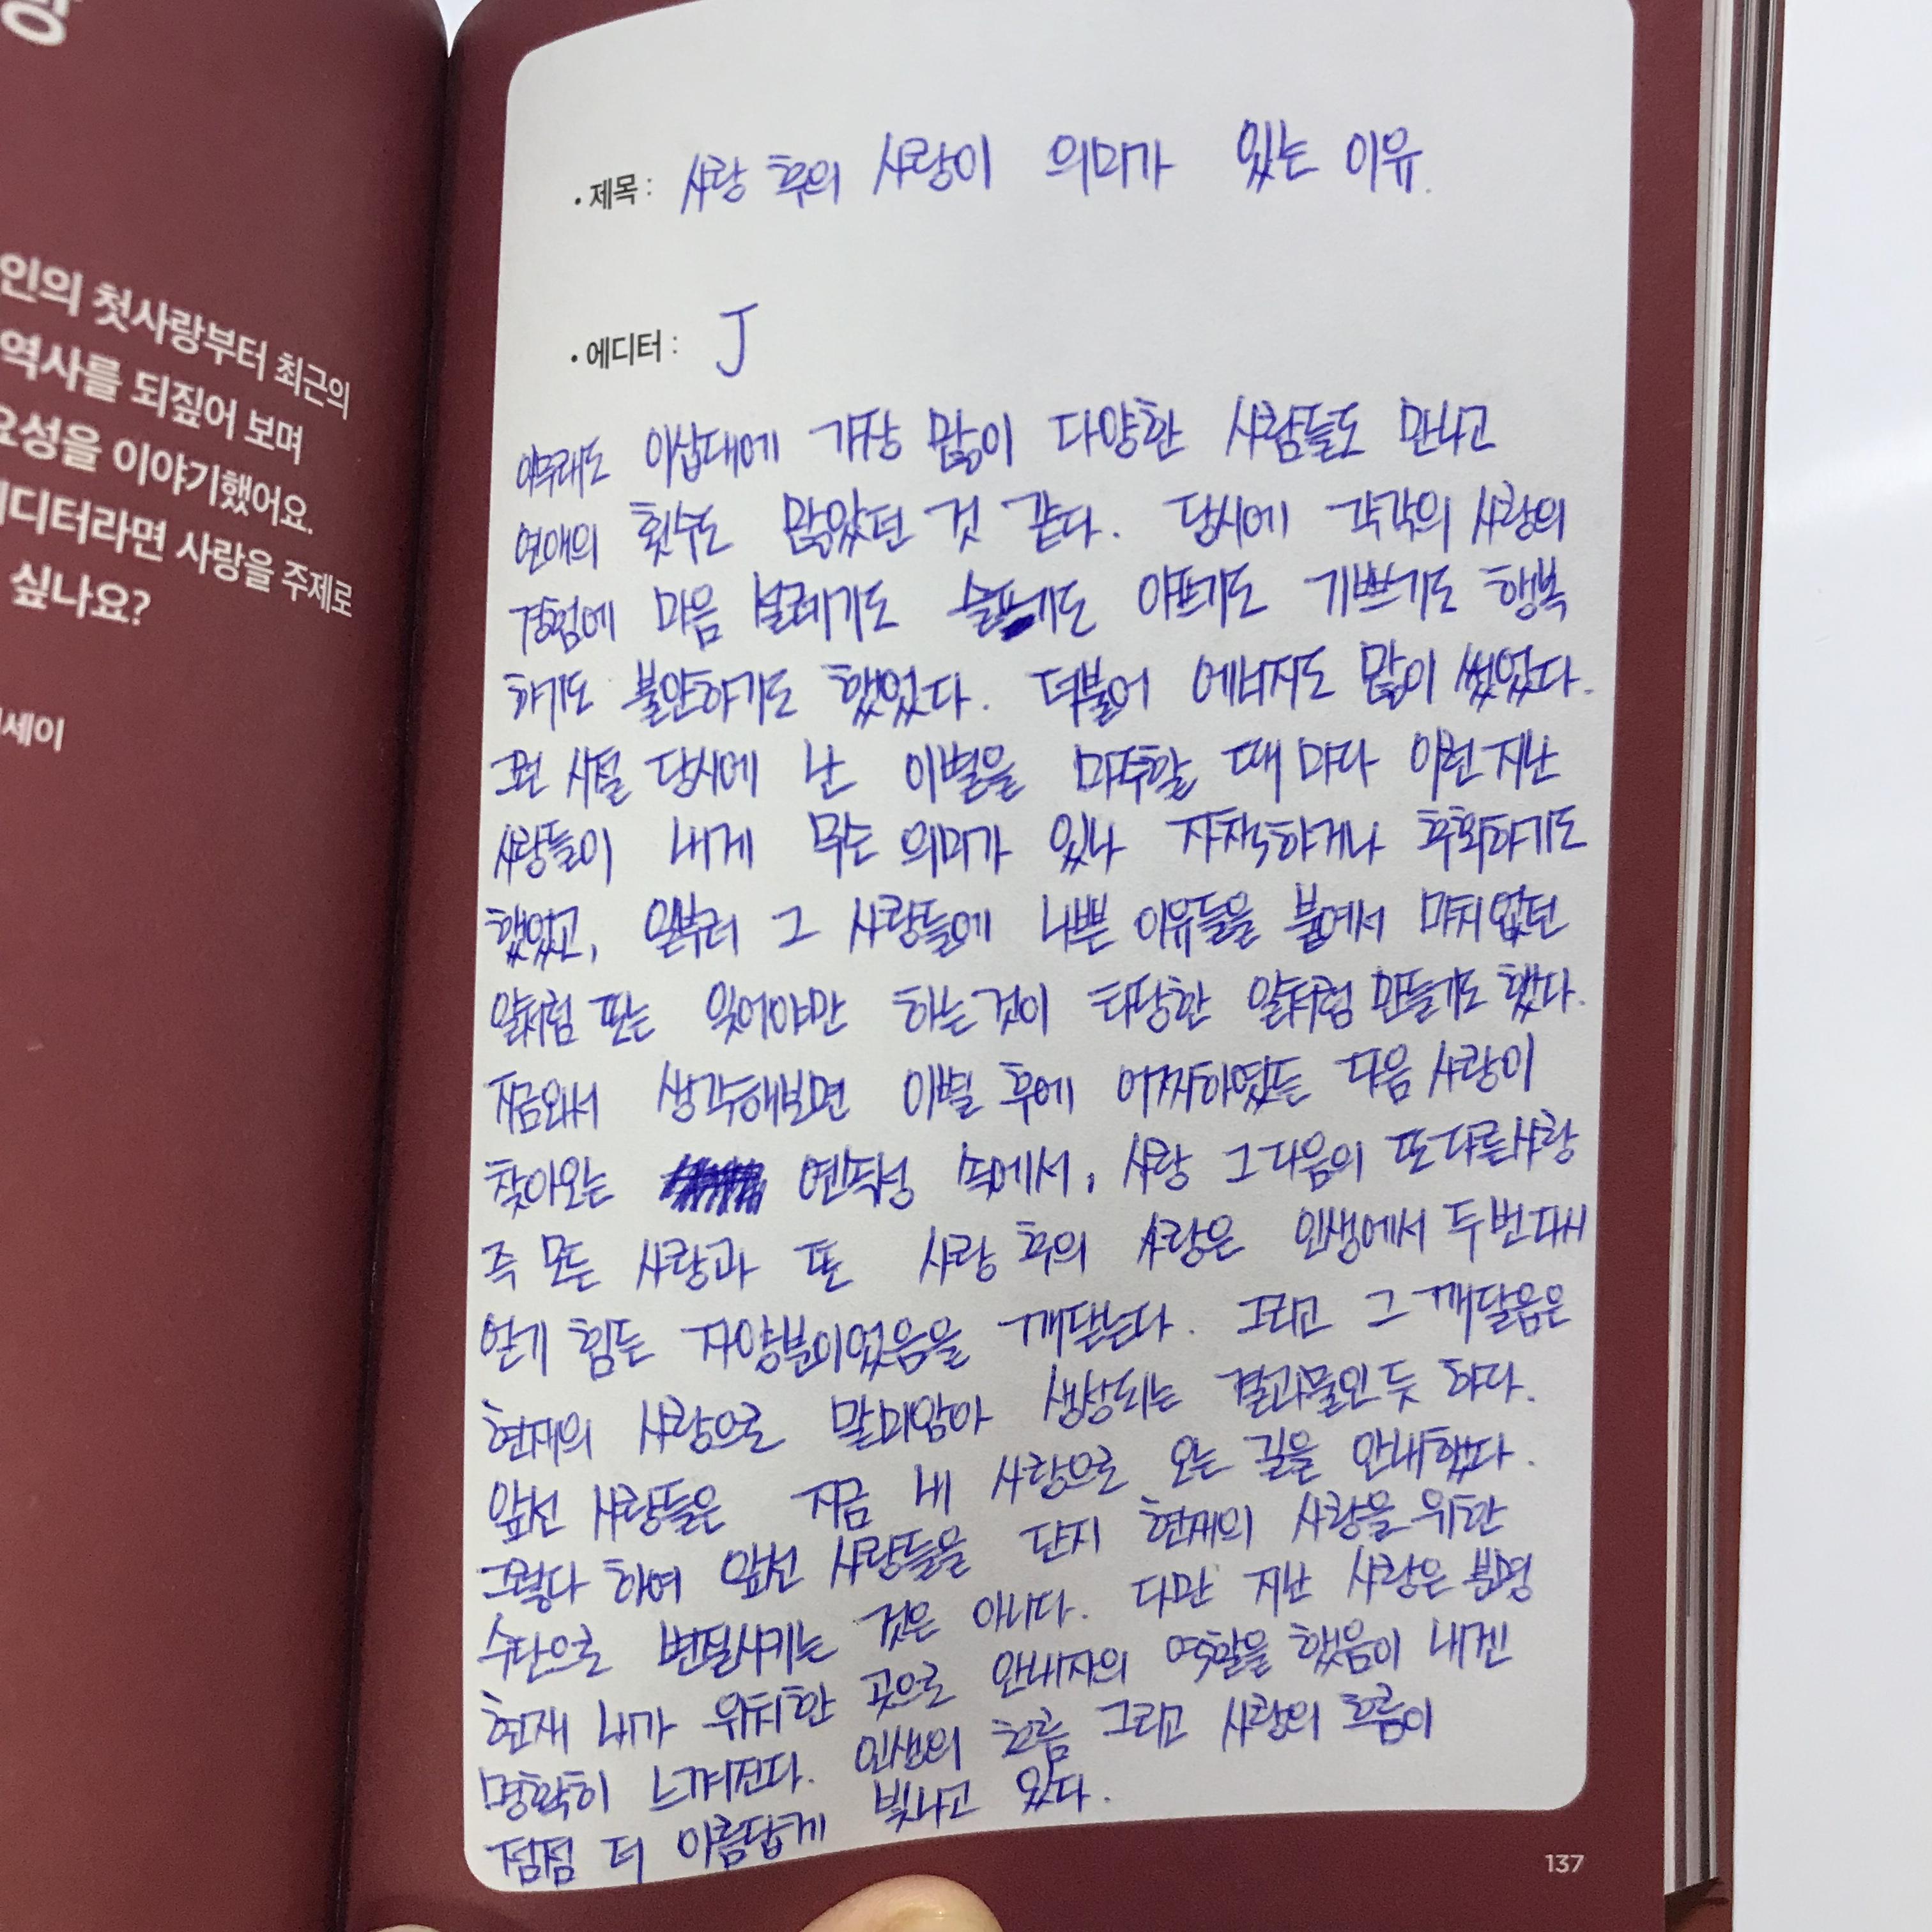 인의 첫사랑부터 최근의
역사를 되짚어 보며
요성을 이야기했어요.
에디터라면 사랑을 주제로
싶나요?
세이
• 제목 : 사랑 후의 사랑이 의미가 있는 이유.
• 에디터 : J
아무래도 이십대에 가장 많이 다양한 사람들도 만나고
연애의 횟수도 많았던 것 같다. 당시에 각각의 사랑의
경험에 마음 설레기도 슬프기도 아프기도 기쁘기도 행복
하기도 불안하기도 했었다. 더불어 에너지도 많이 썼었다.
그런 시절 당시에 난 이별을 마주할 때 마다 이런 지난
사랑들이 내게 무슨 의미가 있나 자책하거나 후회하기도
했었고, 일부러 그 사랑들에 나쁜 이유들을 붙여서 마치 없던
일처럼 또는 잊어야만 하는 것이 타당한 일처럼 만들기도 했다.
지금와서 생각해보면 이별 후에 어찌하였든 다음 사랑이
찾아오는 연속성 속에서, 사랑 그 다음의 또 다른 사랑
즉 모든 사랑과 또 사랑 후의 사랑은 인생에서 두 번 다시
얻기 힘든 자양분이었음을 깨닫는다. 그리고 그 깨달음은
현재의 사랑으로 말미암아 생성되는 결과물인 듯 하다.
앞선 사랑들은 지금 내 사랑으로 오는 길을 안내했다.
그렇다 하여 앞선 사랑들을 단지 현재의 사랑을 위한
수단으로 변질시키는 것은 아니다. 다만 지난 사랑은 분명
현재 내가 위치한 곳으로 안내자의 역할을 했음이 내겐
명확히 느껴진다. 인생의 흐름 그리고 사랑의 흐름이
점점 더 아름답게 빛나고 있다.
137